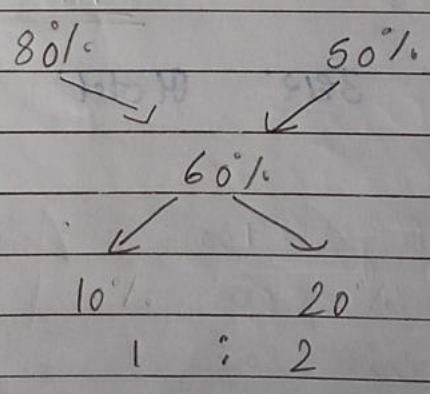 80% 50%
60%
10% 20
1 : 2